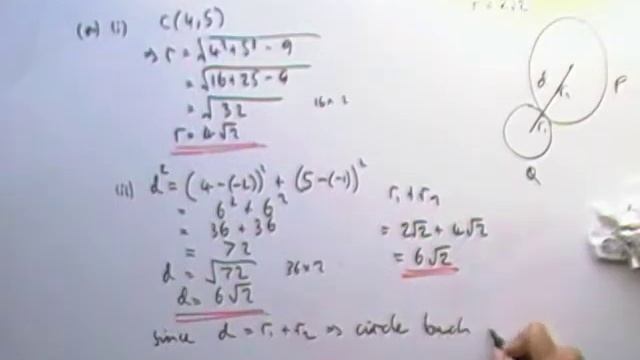 (a) (i) C(4,5)
⇒ r = √4²+5² - 9
= √16+25-9
= √32 16×2
r = 4√2
(ii) d² = (4-(-2))² + (5-(-1))²
= 6² + 6²
= 36 + 36
= 72
d = √72 36×2
d = 6√2
r₁+r₂
= 2√2 + 4√2
= 6√2
since d = r₁+r₂ ⇒ circle touch
d
r₁
P
r₁
Q